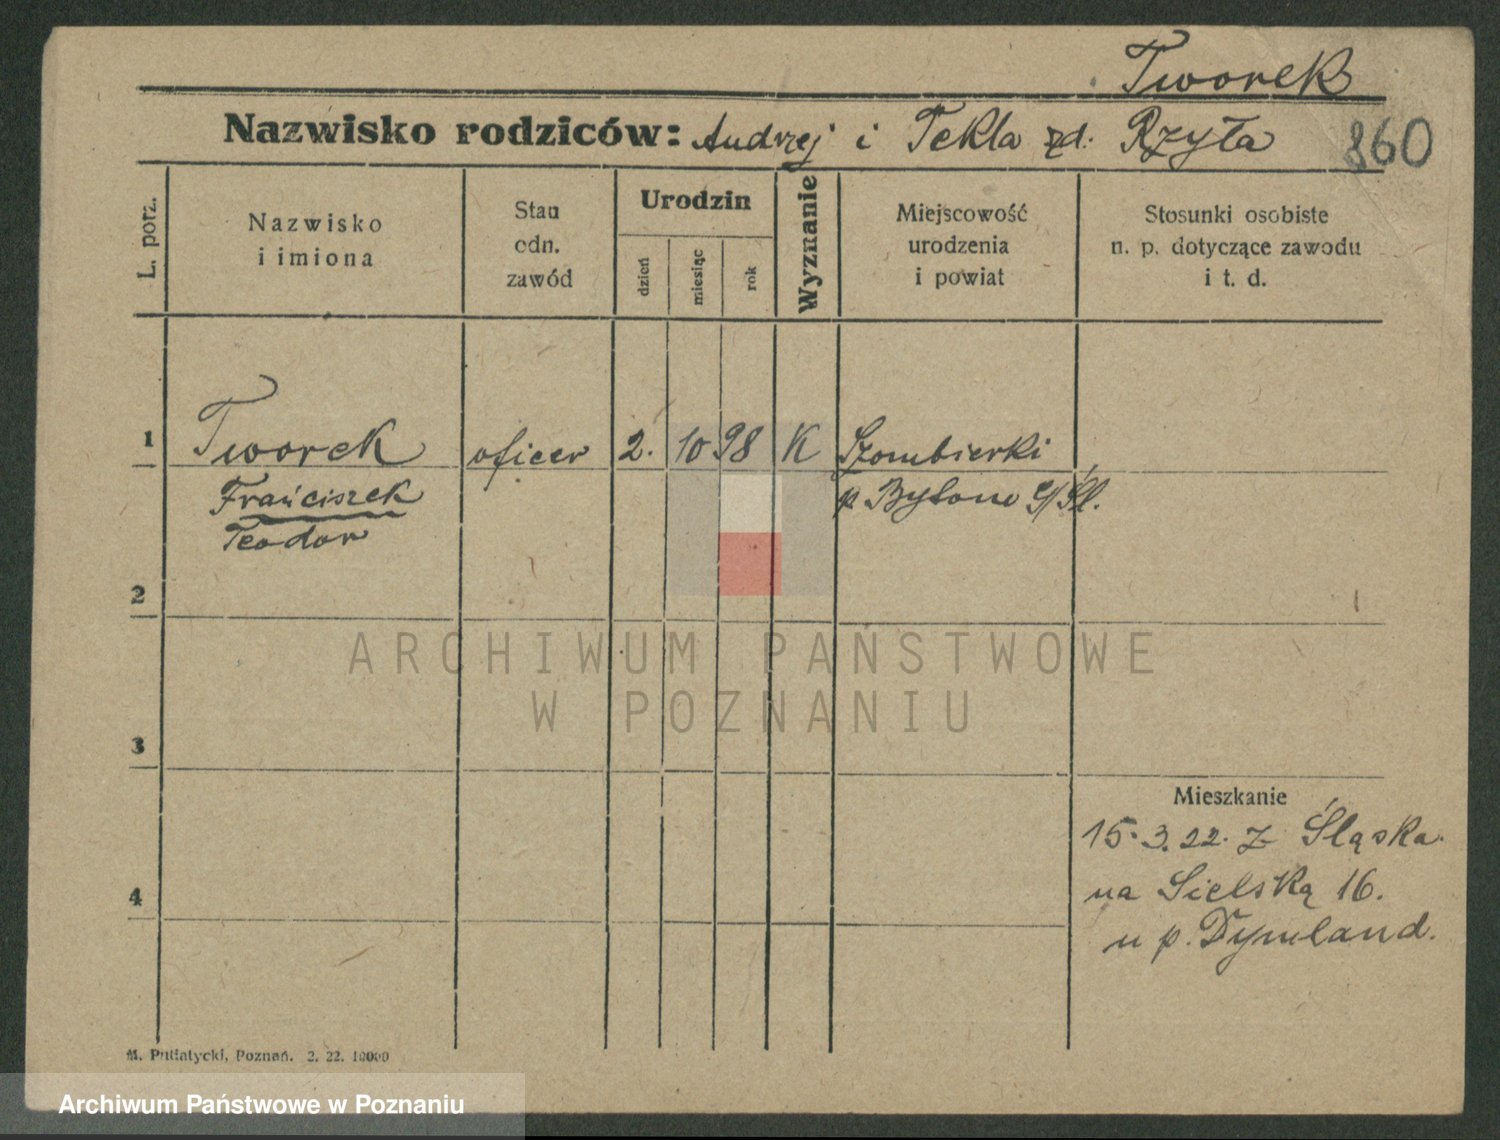 Tworek
Nazwisko rodziców: Andrzej i Tekla zd. Rzyła
860
L. porz.
Nazwisko
i imiona
Stan
odn.
zawód
Urodzin
dzień
miesiąc
rok
Wyznanie
Miejscowość
urodzenia
i powiat
Stosunki osobiste
n. p. dotyczące zawodu
i t. d.
1
Tworek
oficer
2.
10
98
K
Szombierki
Franciszek
p Bytom G/Śl.
Teodor
2
3
Mieszkanie
15.3.22. z Śląska.
4
na Sielską 16.
u p. Dymland.
M. Putiatycki, Poznań. 2. 22. 10000
ARCHIWUM PAŃSTWOWE
W POZNANIU
Archiwum Państwowe w Poznaniu